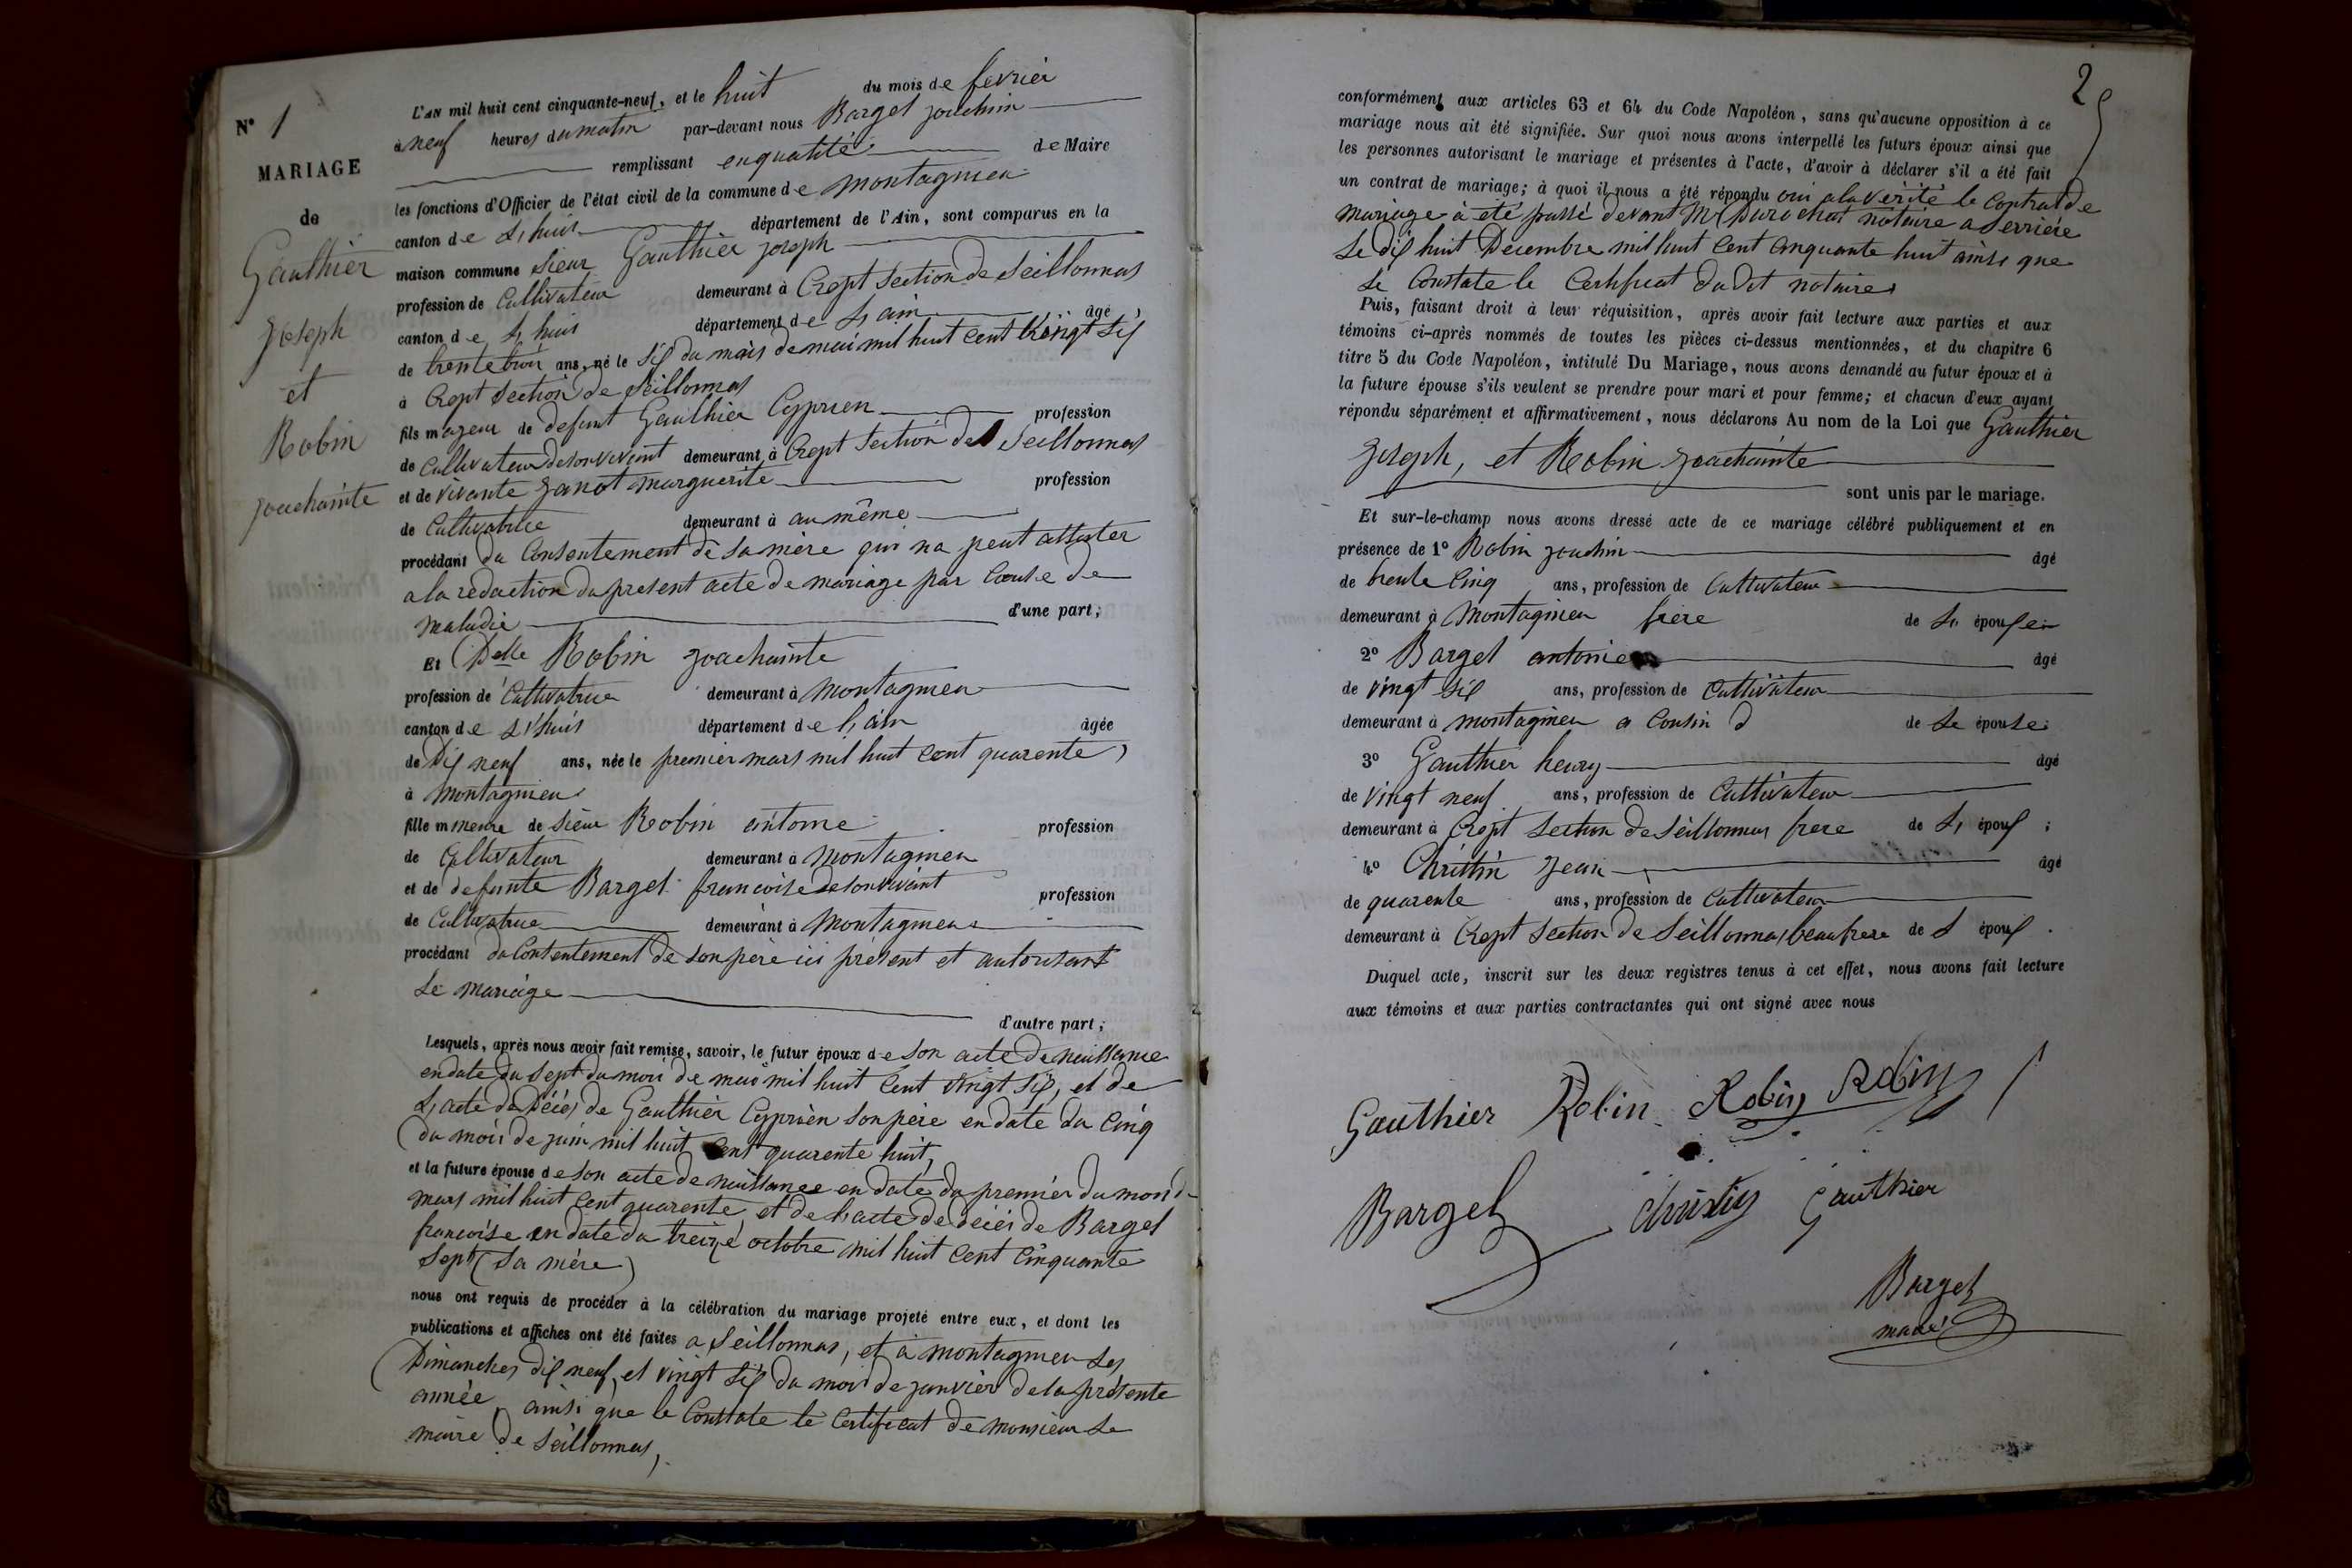 N° 1
MARIAGE
de
Gauthier
joseph
et
Robin
joachainte
L'AN mil huit cent cinquante-neuf, et le huit du mois de fevrier
à neuf heures du matin par-devant nous Bargel joachin
remplissant en qualité de Maire
les fonctions d'Officier de l'état civil de la commune de montagnieu
canton de L,huis département de l'Ain, sont comparus en la
maison commune Sieur Gauthier joseph
profession de Cultivateur demeurant à Crept Section de Seillonnas
canton de L,huis département de L,ain âgé
de trente trois ans, né le Six du mois de mai mil huit cent vingt Six
à Crept Section de Seillonnas
fils majeur de defunt Gauthier Cyprien profession
de Cultivateur de son vivant demeurant à Crept Section de Seillonnas
et de vivante janot marguerite profession
de Cultivatrice demeurant à au même
procédant du Consentement de sa mère qui na peut assister
a la redaction du present acte de mariage par Cause de
maladie d'une part;
Et Delle Robin joachainte
profession de Cultivatrice demeurant à Montagnieu
canton de L'huis département de L,ain âgée
de Dix neuf ans, née le premier mars mil huit Cent quarente,
à Montagnieu
fille mineure de Sieur Robin antoine profession
de Cultivateur demeurant à Montagnieu
et de defunte Bargel francoise de son vivant profession
de Cultivatrice demeurant à Montagnieu
procédant du Contentement de son père ici présent et autorisant
Le mariage
d'autre part;
Lesquels, après nous avoir fait remise, savoir, le futur époux de son acte de naissance
en date du sept du mois de mai mil huit Cent vingt Six, et de
L,acte de Décès de Gauthier Cyprien son père en date du Cinq
du mois de juin mil huit Cent quarente huit,
et la future épouse de son acte de naissance en date du premier du mois d
mars mil huit Cent quarente, et de L,acte de décès de Bargel
francoise en date du treize octobre mil huit Cent Cinquante
Sept (Sa mère)
nous ont requis de procéder à la célébration du mariage projeté entre eux, et dont les
publications et affiches ont été faites a Seillonnas, et à montagnieu Les
Dimanches dix neuf, et vingt Six du mois de janvier de la présente
année, ainsi que le Constate le Certificat de monsieur Le
maire de Seillonnas,
2
conformément aux articles 63 et 64 du Code Napoléon, sans qu'aucune opposition à ce
mariage nous ait été signifiée. Sur quoi nous avons interpellé les futurs époux ainsi que
les personnes autorisant le mariage et présentes à l'acte, d'avoir à déclarer s'il a été fait
un contrat de mariage; à quoi il nous a été répondu oui a la vérité le Contrat de
mariage à été passé devant Mr Durochat notaire a Serrière
Le dix huit Décembre mil huit Cent Cinquante huit ainsi que
Le Constate le Certificat du dit notaire
Puis, faisant droit à leur réquisition, après avoir fait lecture aux parties et aux
témoins ci-après nommés de toutes les pièces ci-dessus mentionnées, et du chapitre 6
titre 5 du Code Napoléon, intitulé Du Mariage, nous avons demandé au futur époux et à
la future épouse s'ils veulent se prendre pour mari et pour femme; et chacun d'eux ayant
répondu séparément et affirmativement, nous déclarons Au nom de la Loi que Gauthier
joseph, et Robin joachainte
sont unis par le mariage.
Et sur-le-champ nous avons dressé acte de ce mariage célébré publiquement et en
présence de 1° Robin joachin âgé
de trente Cinq ans, profession de Cultivateur
demeurant à Montagnieu frère de L, épouse
2° Bargel antoine âgé
de vingt Six ans, profession de Cultivateur
demeurant à montagnieu a Cousin d de Le épouse
3° Gauthier henry âgé
de vingt neuf ans, profession de Cultivateur
demeurant à Crept Section de Seillonnas frere de L, époux ;
4° Christin jean âgé
de quarente ans, profession de Cultivateur
demeurant à Crept Section de Seillonnas beaufrere de L époux .
Duquel acte, inscrit sur les deux registres tenus à cet effet, nous avons fait lecture
aux témoins et aux parties contractantes qui ont signé avec nous
Gauthier Robin Robin Robin
Bargel Christin Gauthier
Bargel
maire